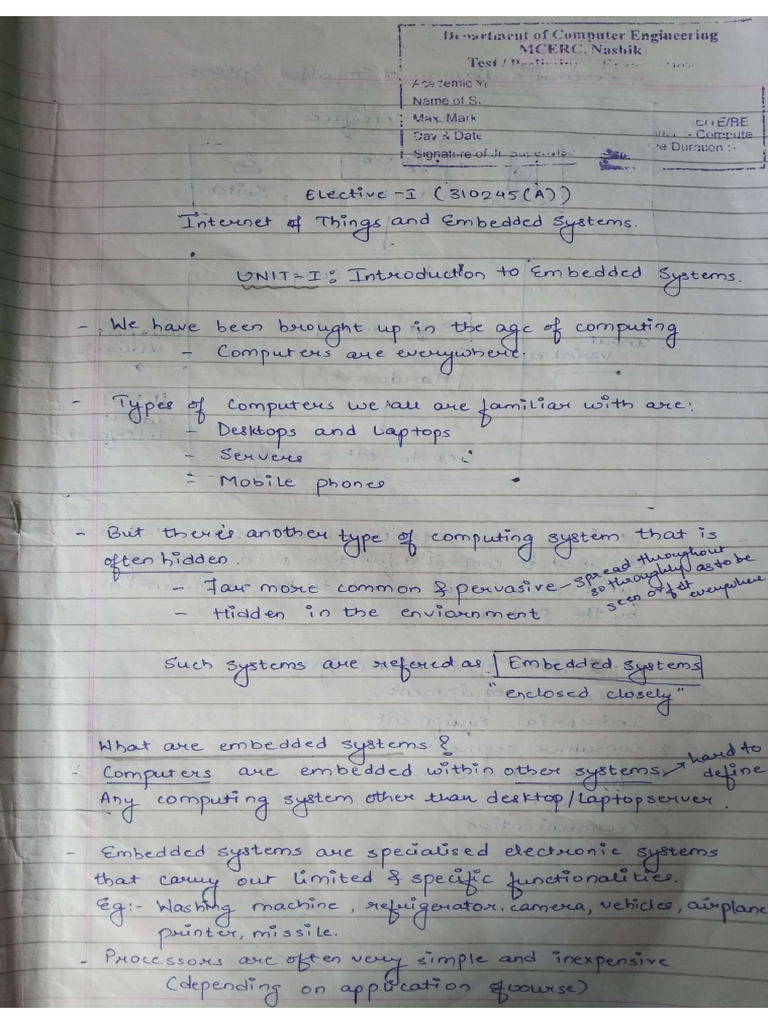 Department of Computer Engineering
MCERC, Nashik
Test /
Academic
Name of S.
Max. Mark
Day & Date
Signature of
E/BE
:- Compute
Duration :-
Elective-I (310245(A))
Internet of Things and Embedded Systems.
UNIT-I: Introduction to Embedded Systems.
- We have been brought up in the age of computing
- Computers are everywhere.
- Types of computers we all are familiar with are:
- Desktops and Laptops
- Servers
= Mobile phones
- But there's another type of computing system that is
often hidden.
- Far more common & pervasive - spread throughout
so throughly as to be
seen or felt everywhere
- Hidden in the enviornment
Such systems are refered as Embedded Systems
"enclosed closely"
What are embedded systems?
- Computers are embedded within other systems, → hard to
define
Any computing system other than desktop/Laptop server.
- Embedded systems are specialised electronic systems
that carry out limited & specific functionalities.
Eg:- Washing machine, refrigerator, camera, vehicles, airplane
printer, missile.
- Processors are often very simple and inexpensive
(depending on application of course)